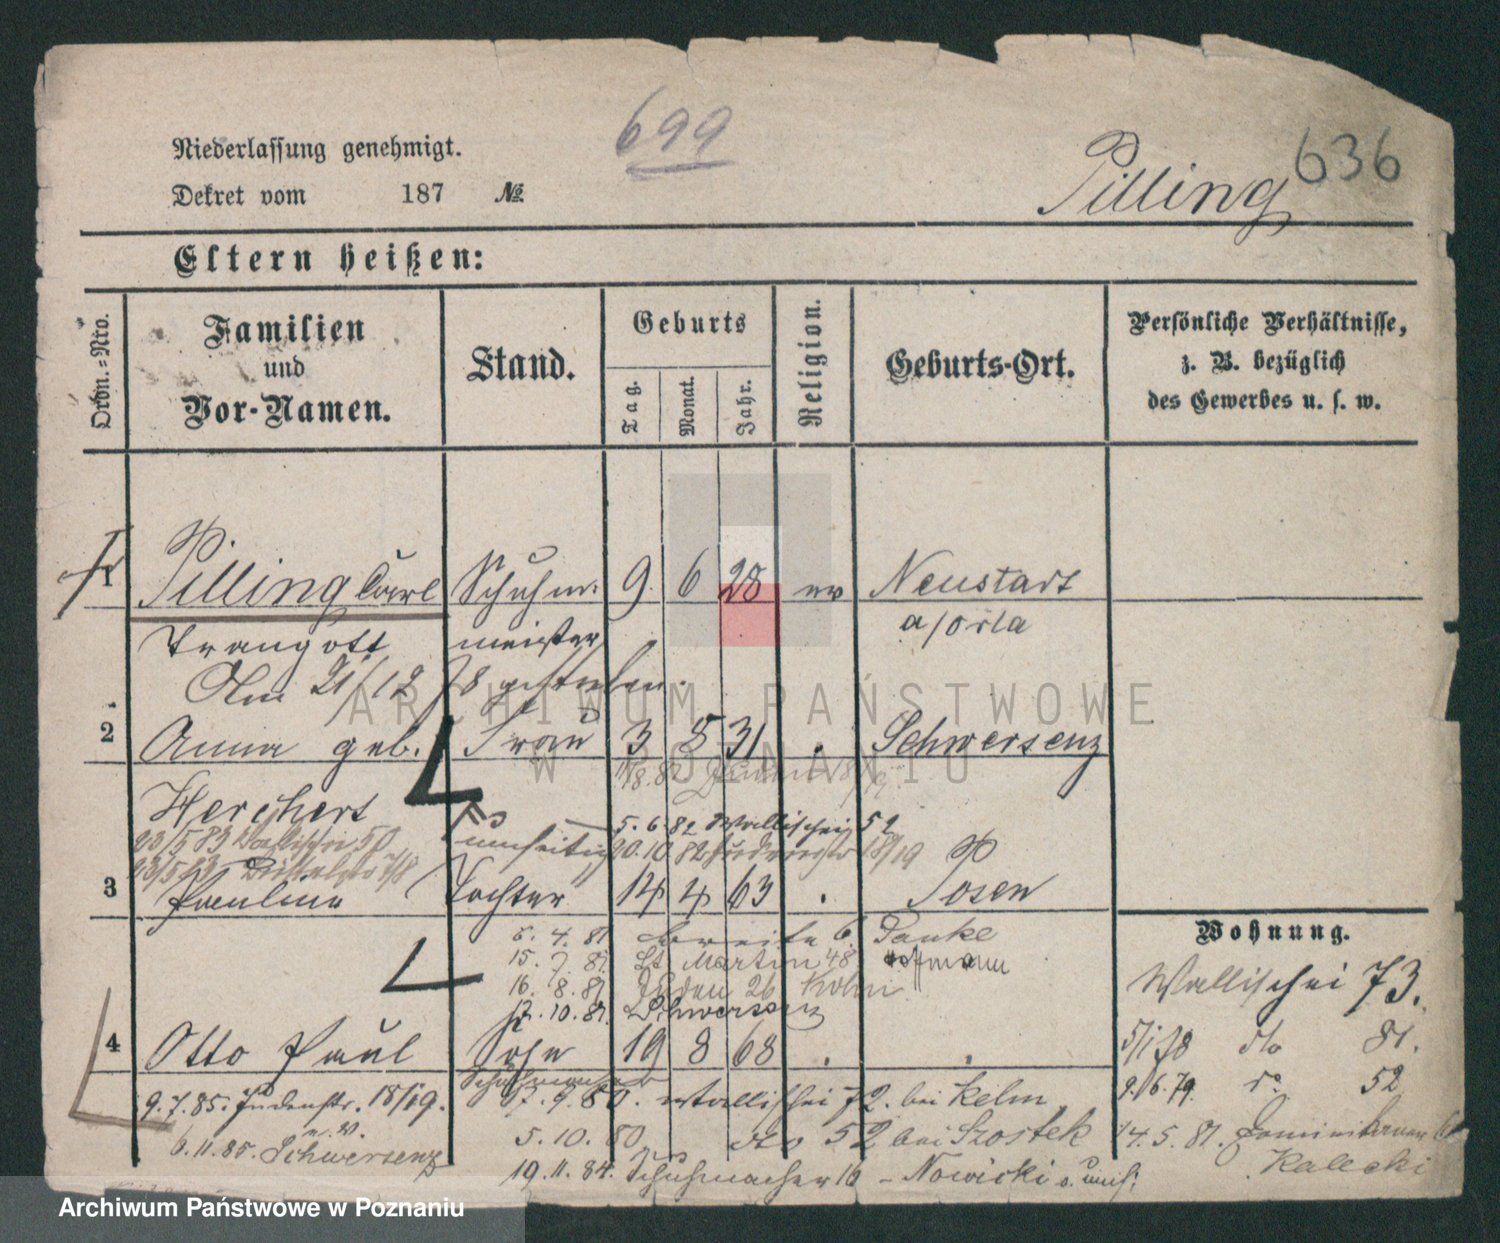 699
636
Niederlassung genehmigt.
Dekret vom 187 №
Pilling
Eltern heißen:
Ordn.-Nro.
Familien und Vor-Namen.
Stand.
Geburts
Tag. Monat. Jahr.
Religion.
Geburts-Ort.
Persönliche Verhältnisse, z. B. bezüglich des Gewerbes u. s. w.
1 Pilling Carl Schuhm: 9. 6 28 ev Neustadt
Traugott meister a/Orla
Am 21/12 78 gestorben.
2 Anna geb. Frau 3 5 31 . Schwersenz
Herchert
5. 6. 82 Wallischei 52
23/5 83 Wallischei 50
20. 10. 82 18/19
3 Pauline Tochter 14 4 63 . Posen
5. 4. 81 breite 6. Panke
15. 7. 81. St. Martin 48 Hoffmann
16. 8. 81 Juden 26 Kolm
12. 10. 81. Schwersenz
4 Otto Paul Sohn 19 8 68 . .
Schuhmacher
9. 7. 85. Judenstr. 18/19. 17. 9. 80. Wallischei 72. bei Kelm
5. 10. 80 dto 52 bei Szostek
6. 11. 85. Schwersenz
19. 11. 84. Schuhmacher 16 - Nowicki
Wohnung.
Wallischei 73.
5/1 78 dto 81.
2./6. 79. do 52
14. 5. 81.
Kalecki
ARCHIWUM PAŃSTWOWE
W POZNANIU
Archiwum Państwowe w Poznaniu